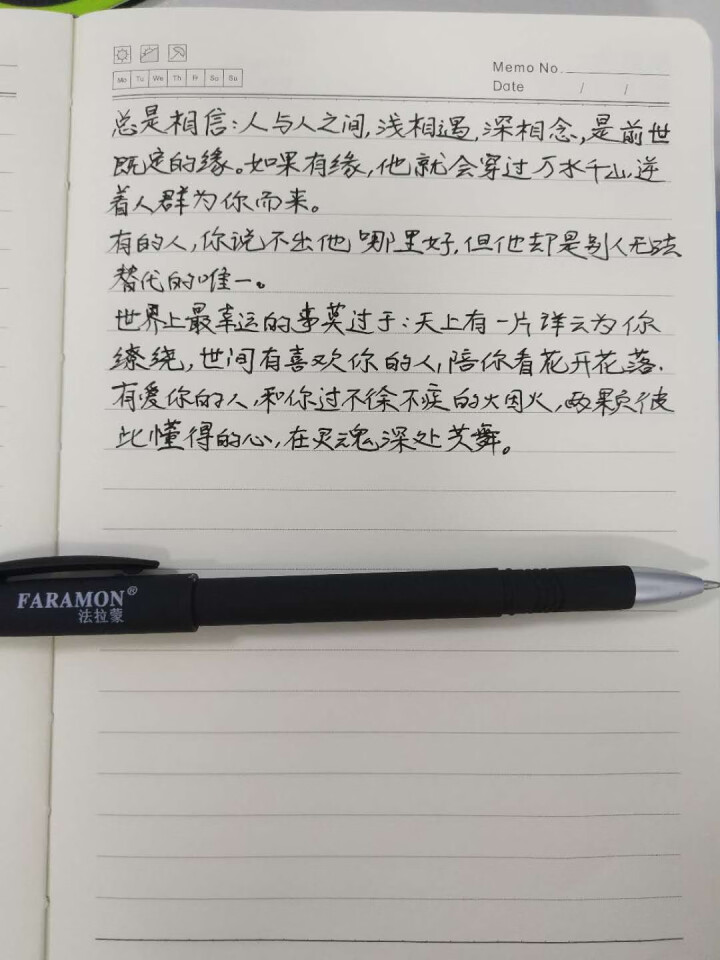 Memo No.
Date / /
Mo Tu We Th Fr Sa Su
总是相信:人与人之间,浅相遇,深相念,是前世
既定的缘。如果有缘,他就会穿过万水千山,逆
着人群为你而来。
有的人,你说不出他哪里好,但他却是别人无法
替代的唯一。
世界上最幸运的事莫过于:天上有一片祥云为你
缭绕,世间有喜欢你的人,陪你看花开花落.
有爱你的人,和你过不徐不疾的火因火,两颗彼
此懂得的心,在灵魂深处共舞。
FARAMON®
法拉蒙